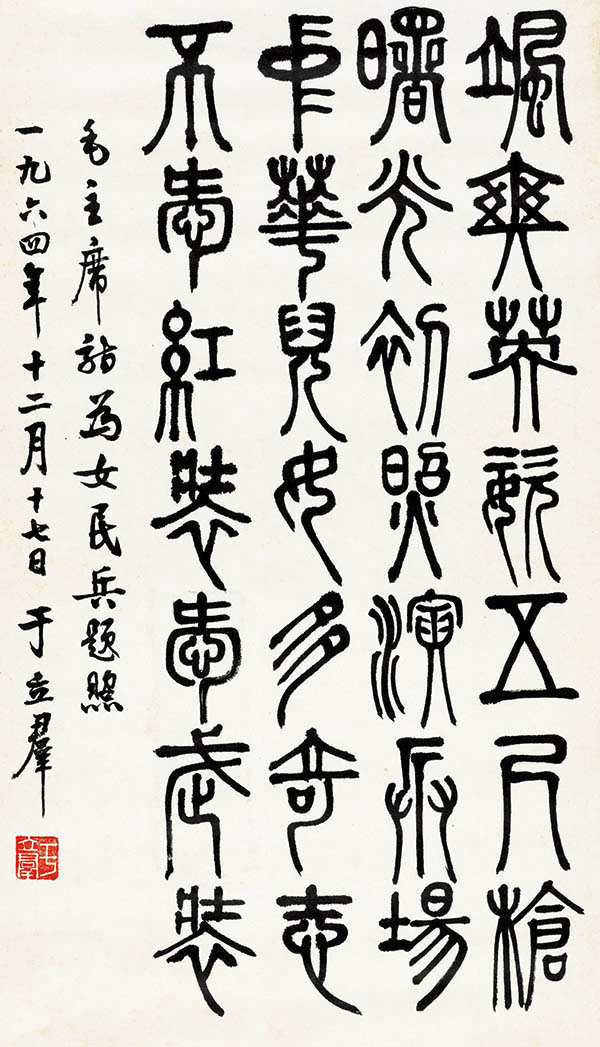 颯爽英姿五尺槍
曙光初照演兵場
中華兒女多奇志
不愛紅裝愛武裝
毛主席詩為女民兵題照
一九六四年十二月十七日 于立羣
于立羣